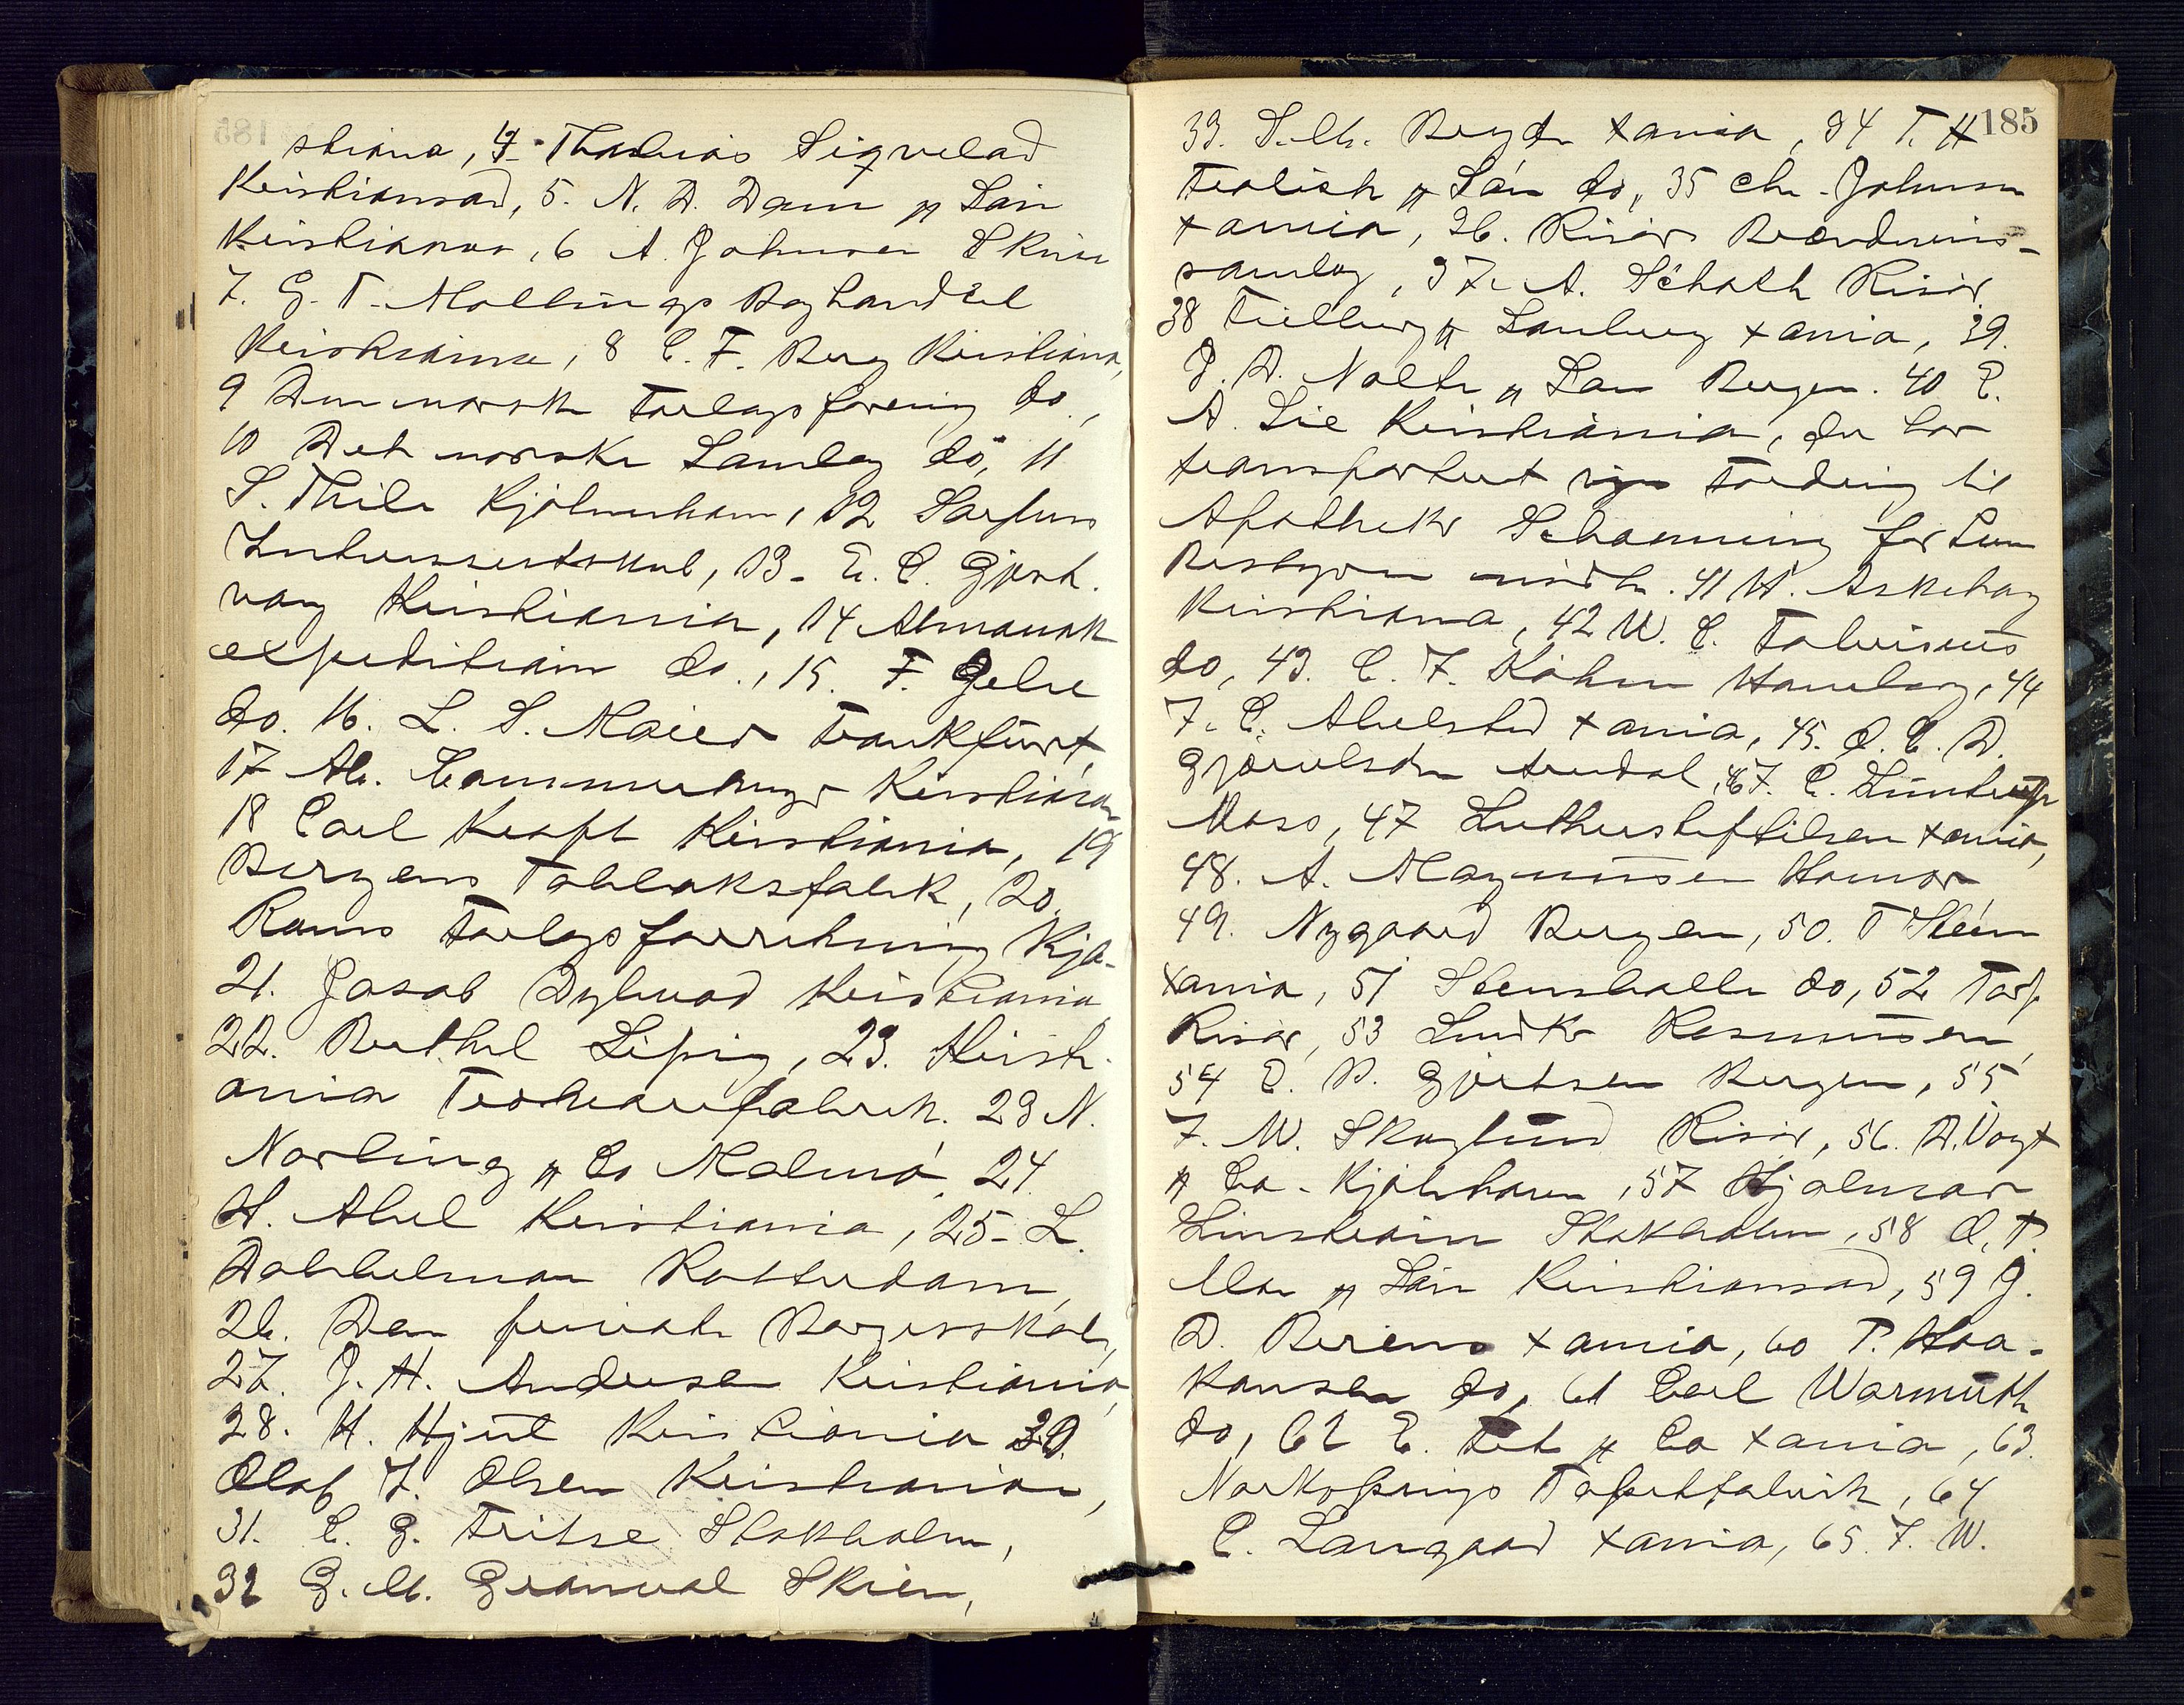 stiania, 4. Thobias Sigvelad
Kristiansand, 5. N. W. Damm & Søn
Kristiania, 6 A. Johnsen Skien
7. G. T. Mallings Boghandel
Kristiania, 8 C. F. Berg Kristiania,
9 Den norske Forlagsforening do.,
10 Det norske Samlag do, 11
S. Thile Kjöbenhavn, 12 Sarpens
Interessentskab, 13. E. C. Gjest-
vang Kristiania, 14 Almanak
expedition do., 15. F. Gelse
do. 16. L. S. Maier Frankfurt,
17 Alb. Cammermeyer Kristiania
18 Carl Kraft Kristiania, 19
Bergens Tobaksfabrik, 20.
Roms Forlagsforretning Kjø.
21. Jacob Dybwad Kristiania
22. Berthel Lipsig, 23. Kristi-
ania Trohvarefabrik. 23 N.
Norling & Co Malmö, 24.
H. Abel Kristiania, 25. L.
Dobbelman Rotterdam,
26. Den private Borgerskole,
27. J. H. Andersen Kristiania,
28. H. Hjul Kristiania 30.
Olaf F. Olsen Kristiania,
31. C. G. Fritse Stokholm,
32 G. M. Granvol Skien,
185
33. S. M. Bryde Xania, 34 T. H
Frölich & Søn do, 35 Chr. Johnsen
Xania, 36. Risør Brændevins-
samlag, 37. A. Schoth Risør
38 Fielberg & Lamberg Xania, 39.
J. W. Nolte & Søn Bergen. 40 E.
A. Lie Kristiania, der har
transporteret sin Fordring til
Apotheker Schanning for hvem
Restgorn mødte. 41 H. Askehoug
Kristiania, 42 W. C. Fabritius
do, 43. C. F. Köhn Hamburg, 44
F. C. Abelsted Xania, 45. O. C. D.
Gjeruldsen Arendal, 46 F. C. Limtrup
Moss, 47 Lutherstiftelsen Xania,
48. A. Magnussen Hamar
49. Nygaard Bergen, 50. T Steen
Xania, 51 Stensballe do, 52 Torp
Risør, 53 Ludv Rasmussen,
54 E. B. Gjertsen Bergen, 55
F. W. Skoglund Risør, 56. D. Vogt
& Co. Kjöbenhavn, 57 Hjalmar
Linström Stokholm, 58 O. P.
Moe & Søn Kristiansand, 59 J.
D. Beriens Xania, 60 P. Haa-
konsen do, 61 Carl Warmuth
do, 62 E. Fet & Co Xania, 63.
Norkopings Tapetfabrik, 64
C. Langaard Xania, 65. F. W.